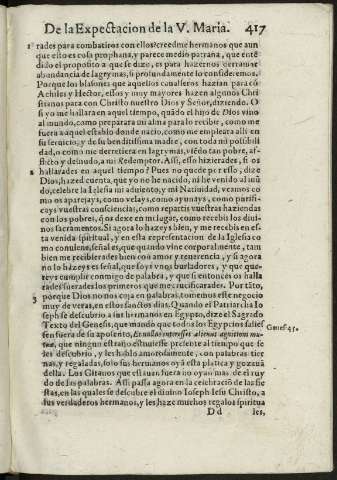 De la Expectacion de la V. Maria. 417
1 rades para combatiros con ellos? creedme hermanos que aun
que esto es cosa prophana, y parece medio patraña, que enté
dido el proposito a que se dize, es para hazernos derramar
abundancia de lagrymas, si profundamente lo consideremos.
Porque los blasones que aquellos cavalleros hazian para cõ
Achiles y Hector, essos y muy mayores hazen algunos Chri
stianos para con Christo nuestro Dios y Señor, diziendo. O
si yo me hallara en aquel tiempo, quãdo el hijo de Dios vino
al mundo, como preparara mi alma para lo recibir, como me
fuera a aquel establo donde nacio, como me empleara alli en
su servicio, y de su benditissima madre, con toda mi possibili
dad, o como me derretiera en lagrymas, viẽdo tan pobre, af-
flicto y desnudo, a mi Redemptor. Assi, esso hizierades, si os
2 hallarades en aquel tiempo? Pues no quede por esso, dize
Dios, hazed cuenta, que yo no he nacido, ni he venido al mũ
do, celebre la Iglesia mi adviento, y mi Natividad, veamos co
mo os aparejays, como velays, como ayunays, como purifi-
cays vuestras consciencias, como repartis vuestras haziendas
con los pobres, q̃ os dexe en mi lugar, como recebis los divi
nos sacramentos. Si agora lo hazeys bien, y me recebis en es-
ta venida spiritual, y en esta representacion de la Iglesia co
mo conviene, señal es, que quando vine corporalmente, tam
bien me recibierades bien con amor y reverencia, y si agora
no lo hazeys es señal, que soys vnos burladores, y que que-
reys cumplir conmigo de palabra, y que si entonces os halla
rades fuerades los primeros que me crucificarades. Por tãto,
3 porque Dios no nos coja en palabras, tomemos este negocio
muy de veras, en estos sanctos dias. Quando el Patriarcha Io
seph se descubrio a sus hermanos en Egypto, dize el Sagrado
Texto del Genesis, que mandò que todos los Egypcios salies
Genes 45.
sen fuera de su aposento, Et nullus interesset alienus agnitioni mu-
tuæ, que ningun estraño estuviesse presente al tiempo que se
les descubrio, y les hablo amorosamente, con palabras tier
nas, y regaladas, solo sus hermanos oyã esta platica y gozauã
della. Los Gitanos que estauan fuera no oyan mas de el ruy
do de las palabras. Assi passa agora en la celebraciõ de las fie
stas, en las quales se descubre el divino Ioseph Iesu Christo, a
sus verdaderos hermanos, y les haze muchos regalos spiritua
D d les,